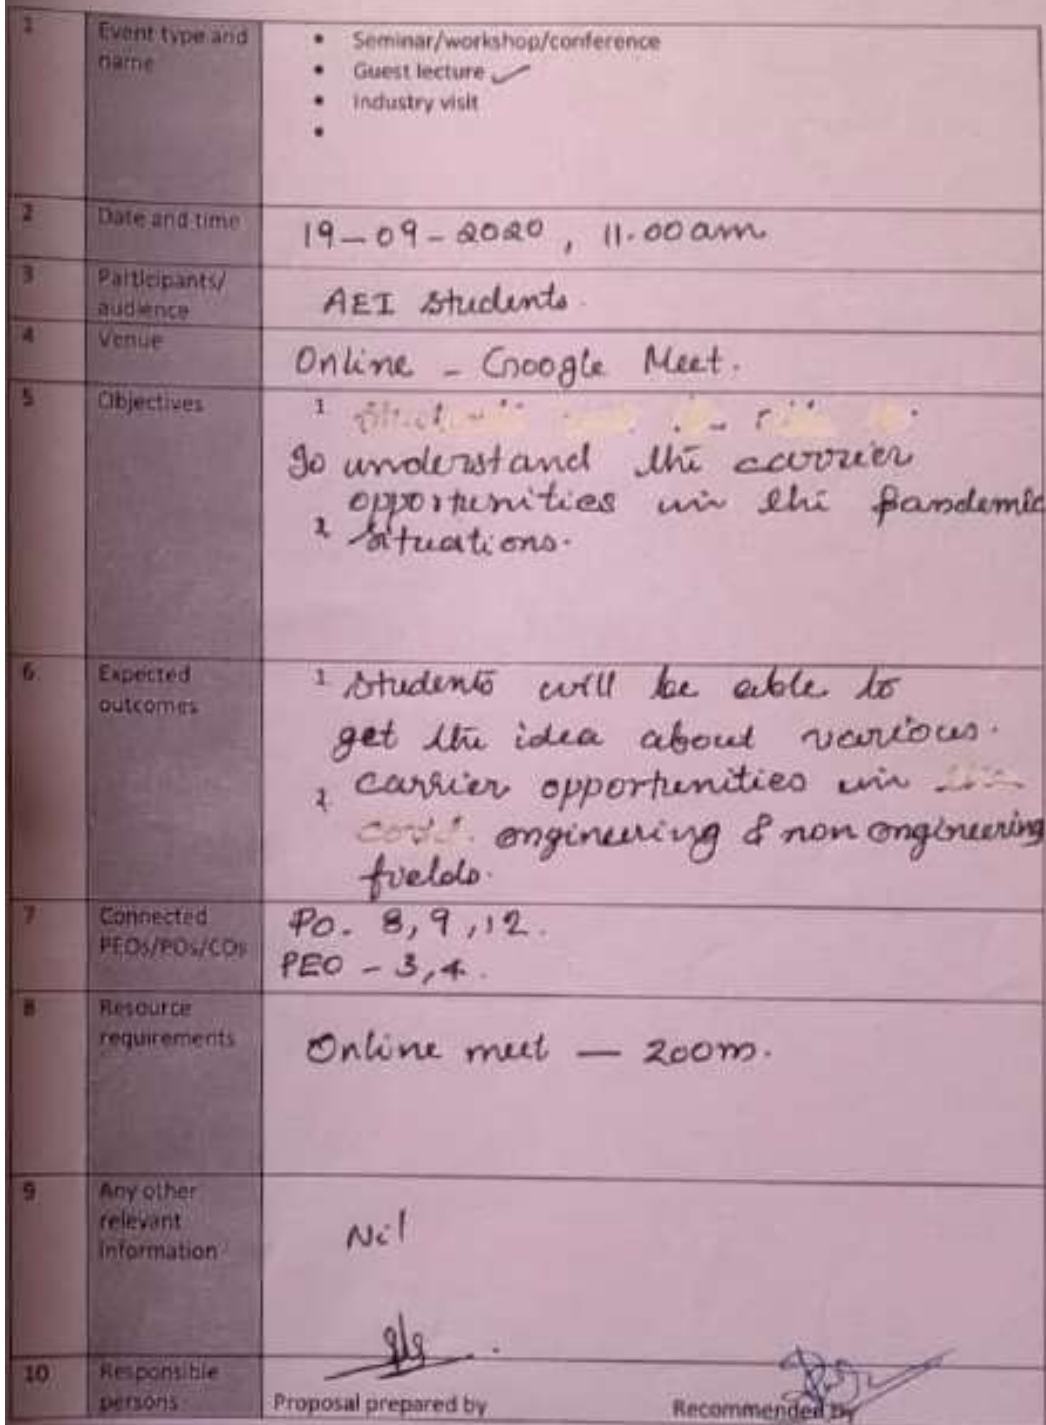 1 Event type and name
• Seminar/workshop/conference
• Guest lecture ✓
• Industry visit
•
2 Date and time 19-09-2020, 11.00am
3 Participants/ audience AEI Students.
4 Venue Online - Google Meet.
5 Objectives 1
To understand the carrier
opportunities in the pandemic
2 situations.
6. Expected outcomes 1 Students will be able to
get the idea about various.
2 carrier opportunities in
engineering & non engineering
fields.
7 Connected PEOs/POs/COs PO. 8, 9, 12.
PEO - 3, 4.
8 Resource requirements Online meet — zoom.
9 Any other relevant information Nil
10 Responsible persons
Proposal prepared by Recommended by